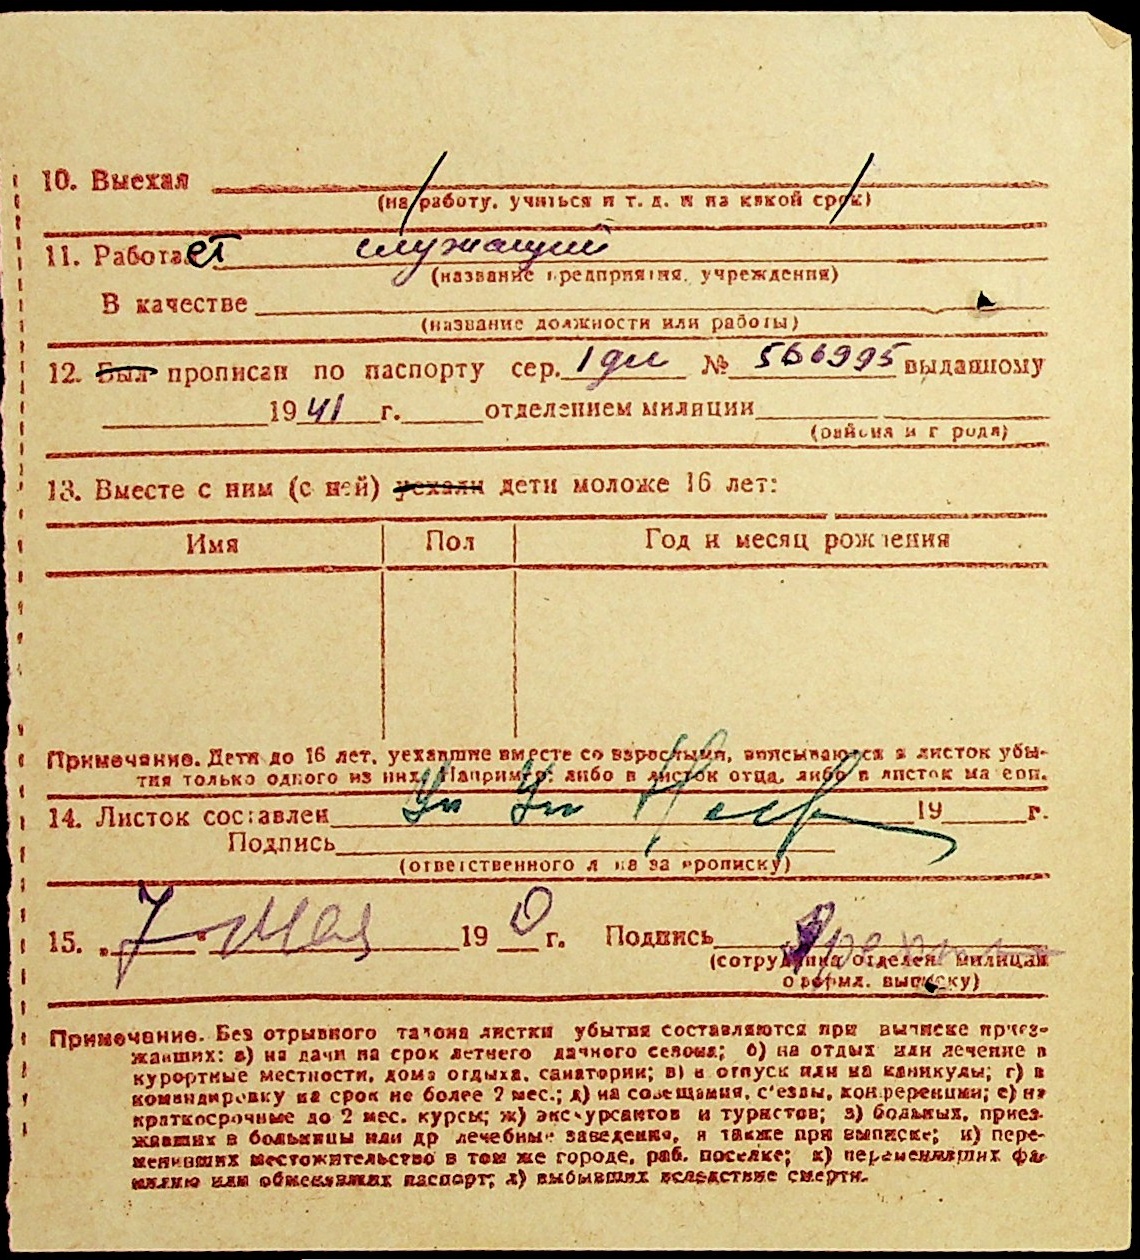 10. Выехал
(на работу, учиться и т. д. и на какой срок)
11. Работает служащий
(название предприятия, учреждения)
В качестве
(название должности или работы)
12. Был прописан по паспорту сер. № 566995 выданному
1941 г. отделением милиции
(района и города)
13. Вместе с ним (с ней) уехали дети моложе 16 лет:
Имя Пол Год и месяц рождения
Примечание. Дети до 16 лет, уехавшие вместе со взрослыми, вписываются в листок убы-
тия только одного из них. Например: либо в листок отца, либо в листок матери.
14. Листок составлен 19 г.
Подпись
(ответственного лица за прописку)
15. „7" мая 190 г. Подпись
(сотрудника отделен. милиции
оформл. выписку)
Примечание. Без отрывного талона листки убытия составляются при выписке приез-
жавших: а) на дачи на срок летнего дачного сезона; б) на отдых или лечение в
курортные местности, дома отдыха, санатории; в) в отпуск или на каникулы; г) в
командировку на срок не более 2 мес.; д) на совещания, с'езды, конференции; е) на
краткосрочные до 2 мес. курсы; ж) экскурсантов и туристов; з) больных, приез-
жавших в больницы или др лечебные заведения, а также при выписке; и) пере-
менивших местожительство в том же городе, раб. поселке; к) переменивших фа-
милию или обменявших паспорт; л) выбывших вследствие смерти.